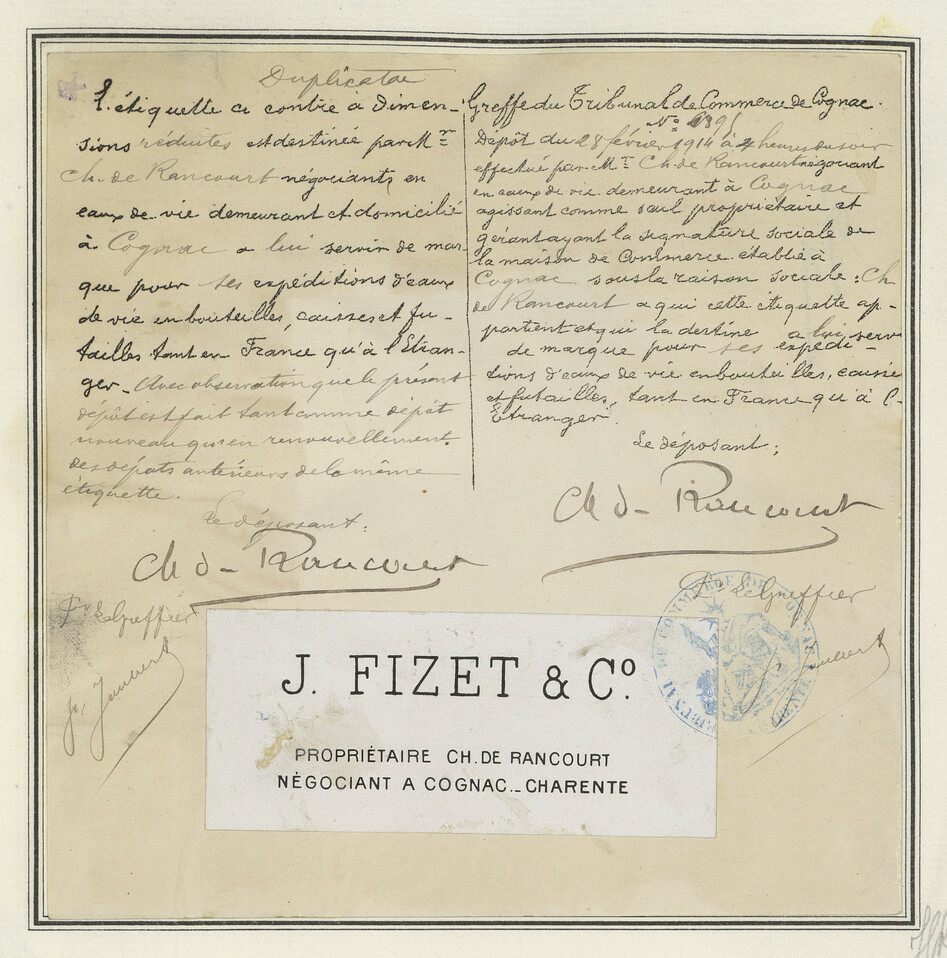 Duplicatae
L'étiquette ci contre à dimen-
sions réduites est destinée par Mr
Ch. de Rancourt négociants en
eaux de vie demeurant et domicilié
à Cognac a lui servir de mar-
que pour ses expéditions d'eaux
de vie en bouteilles, caisses et fu-
tailles tant en France qu'à l'Etran-
ger. Avec observation que le présent
dépôt est fait tant comme dépôt
nouveau qu'en renouvellement
des dépôts antérieurs de la même
étiquette.
Le déposant:
Ch d- Rancourt
Pr Le Greffier
Greffe du Tribunal de Commerce de Cognac.
No
Dépôt du 28 février 1914 à 4 heures du soir
effectué par Mr Ch. de Rancourt négociant
en eaux de vie demeurant à Cognac
agissant comme seul propriétaire et
gérant ayant la signature sociale de
la maison de Commerce établie à
Cognac sous la raison sociale: Ch
de Rancourt a qui cette étiquette ap-
partient et qui la destine a lui servir
de marque pour ses expédi-
tions d'eaux de vie en bouteilles, caisse
et futailles, tant en France qu'à l'-
Etranger.
Le déposant:
Ch d- Rancourt
Pr Le Greffier
J. FIZET & Co.
PROPRIÉTAIRE CH. DE RANCOURT
NÉGOCIANT A COGNAC._CHARENTE